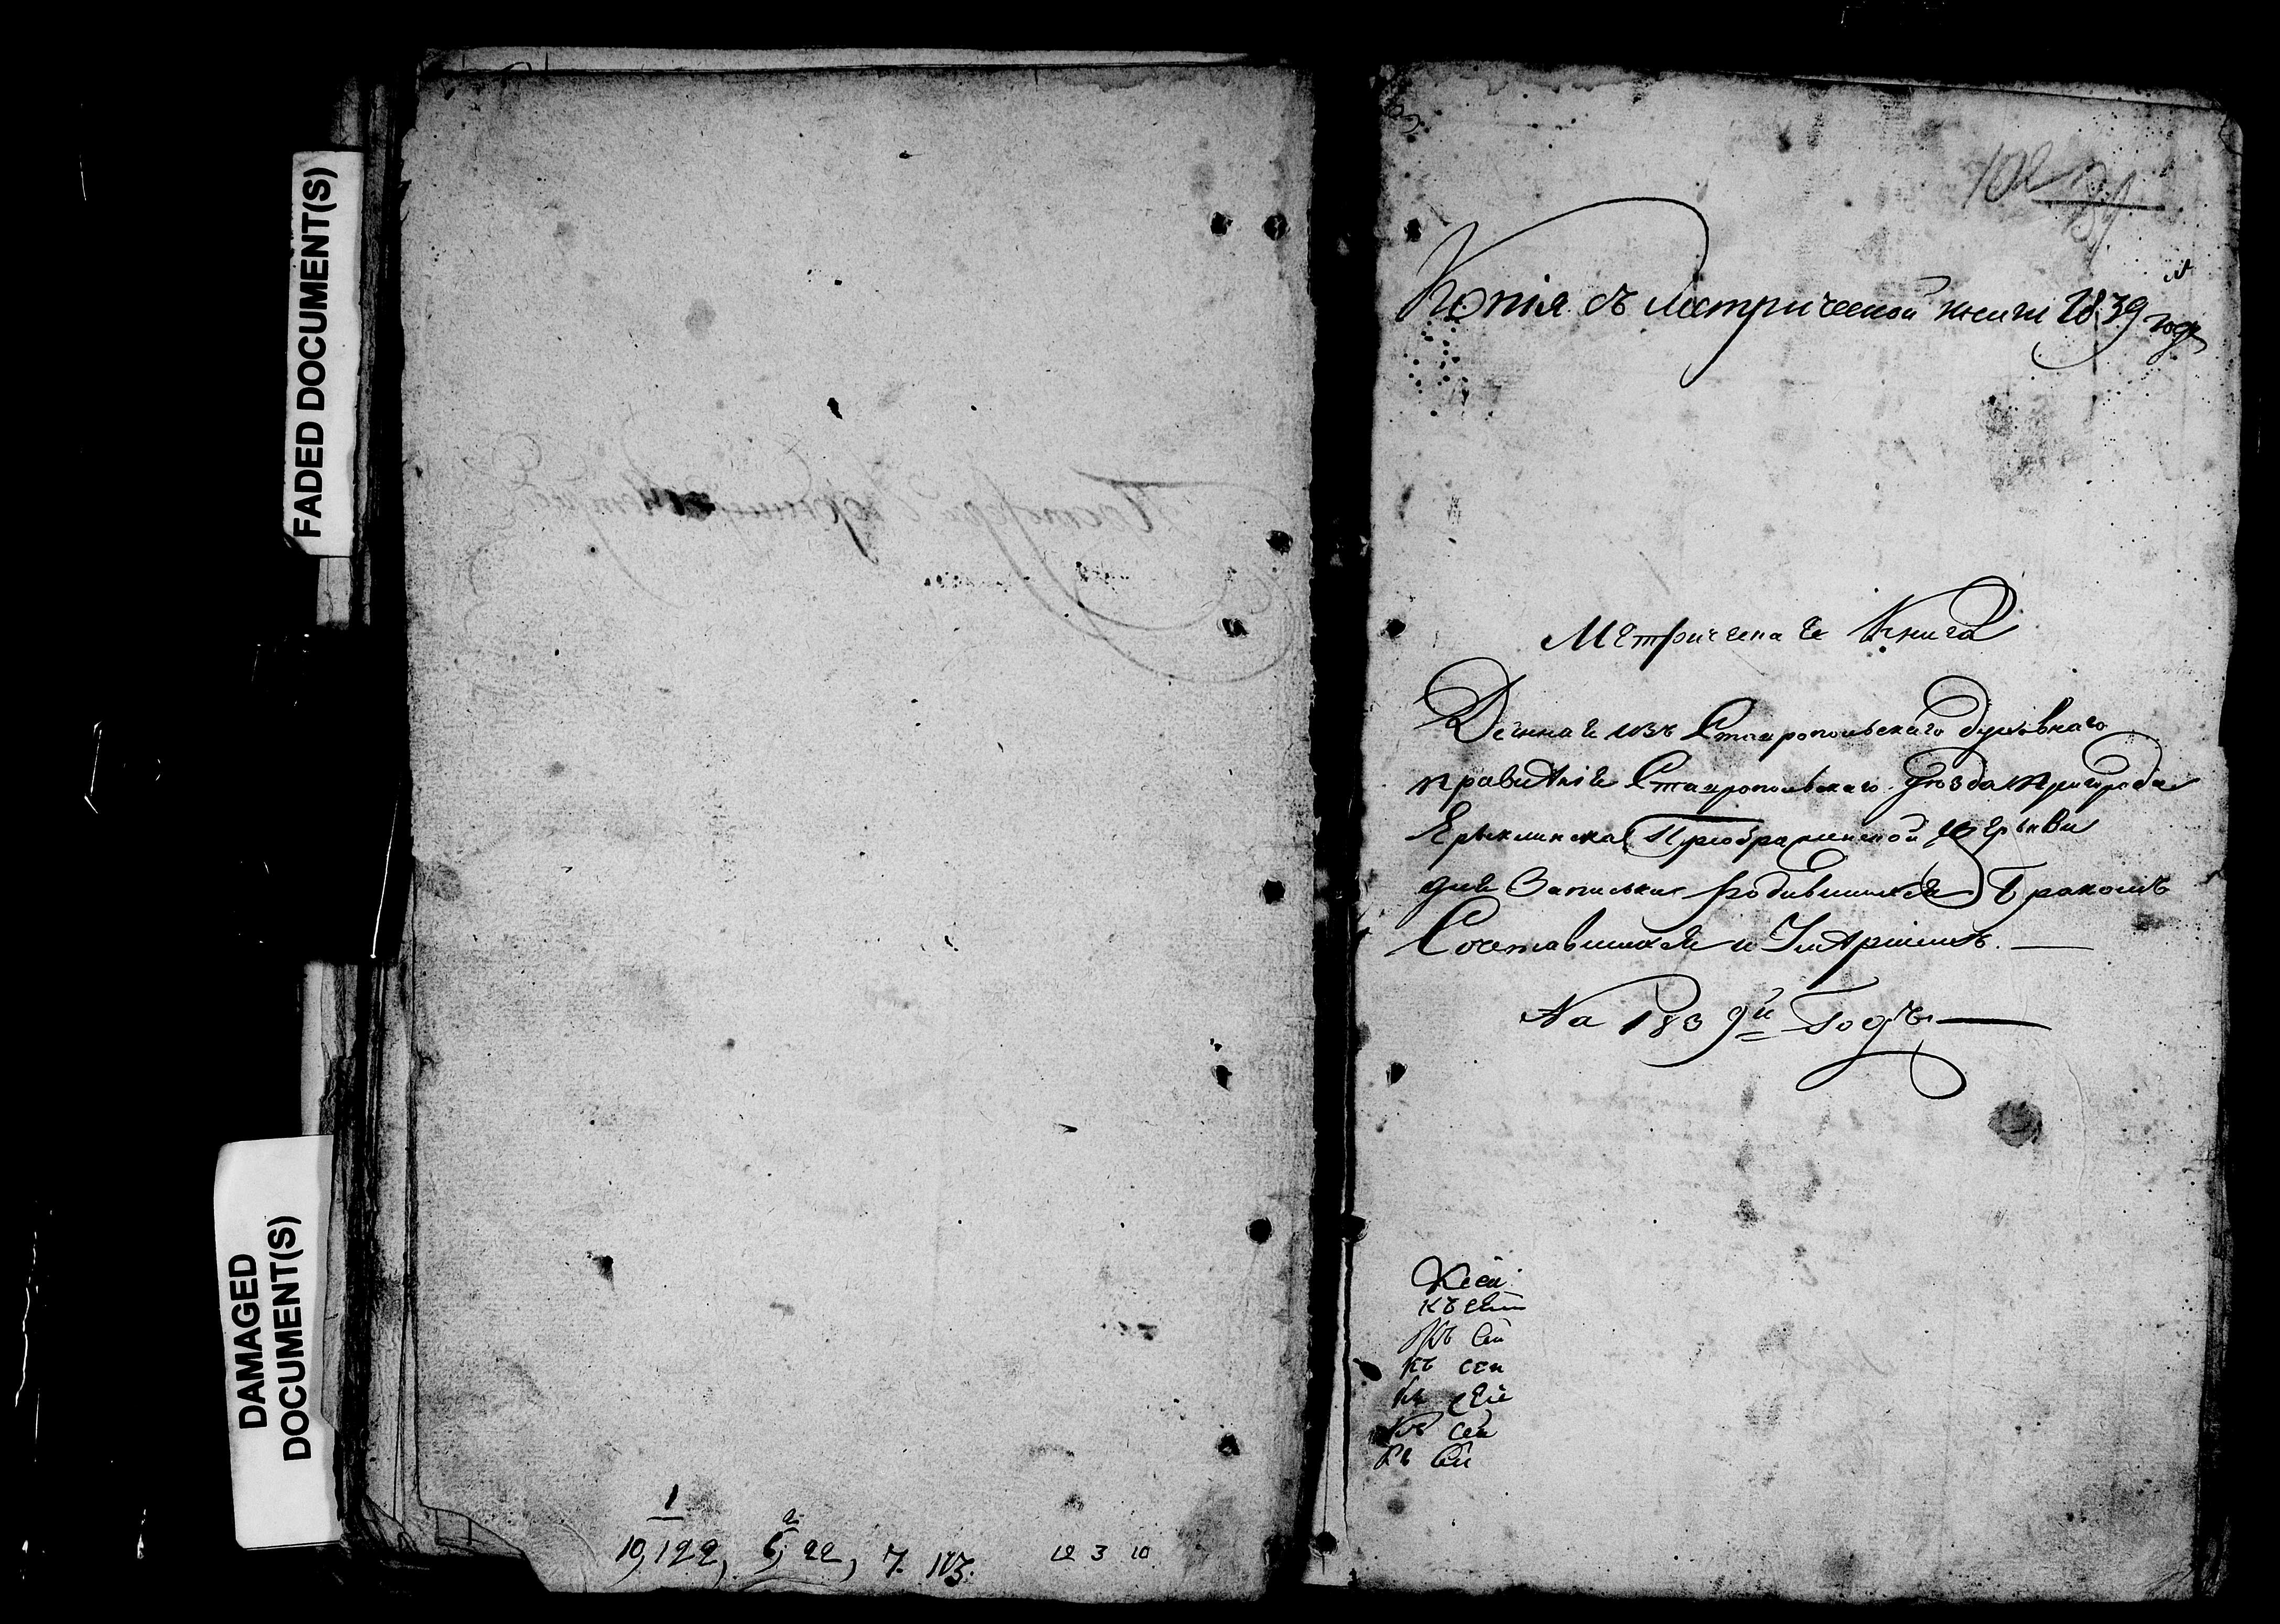 FADED DOCUMENT(S)
DAMAGED
DOCUMENT(S)
1
10,122, 6, 22, 7. 113.
12 3 10
102
Копія съ Метрической книги 1839 года
Метрическая Книга
Данная изъ Ставропольскаго духовнаго
правленія Ставропольскаго уѣзда пригорода
Ерыклинска Преображенской Церькви
для Записки родившихся Бракомъ
Сочетавшихся и Умершихъ.
На 1839й Годъ
Къ сей
къ сей
Къ сей
къ сей
Къ сей
Къ сей
Къ сей